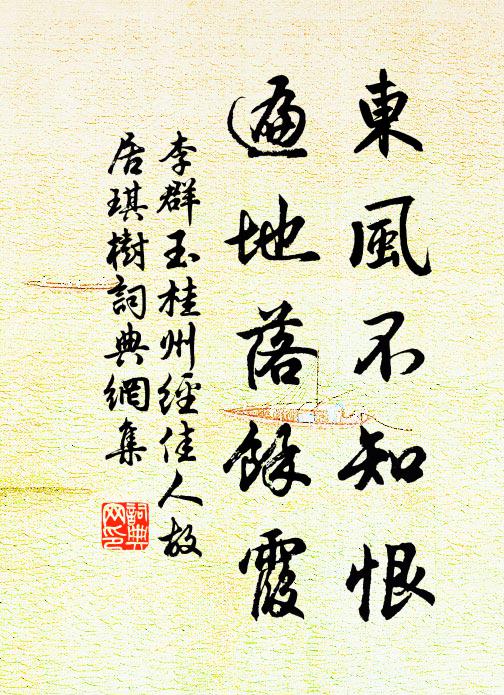 東風不知恨
遍地落餘霞
李群玉桂州經佳人故
居琪樹詞典網集
詞典网印